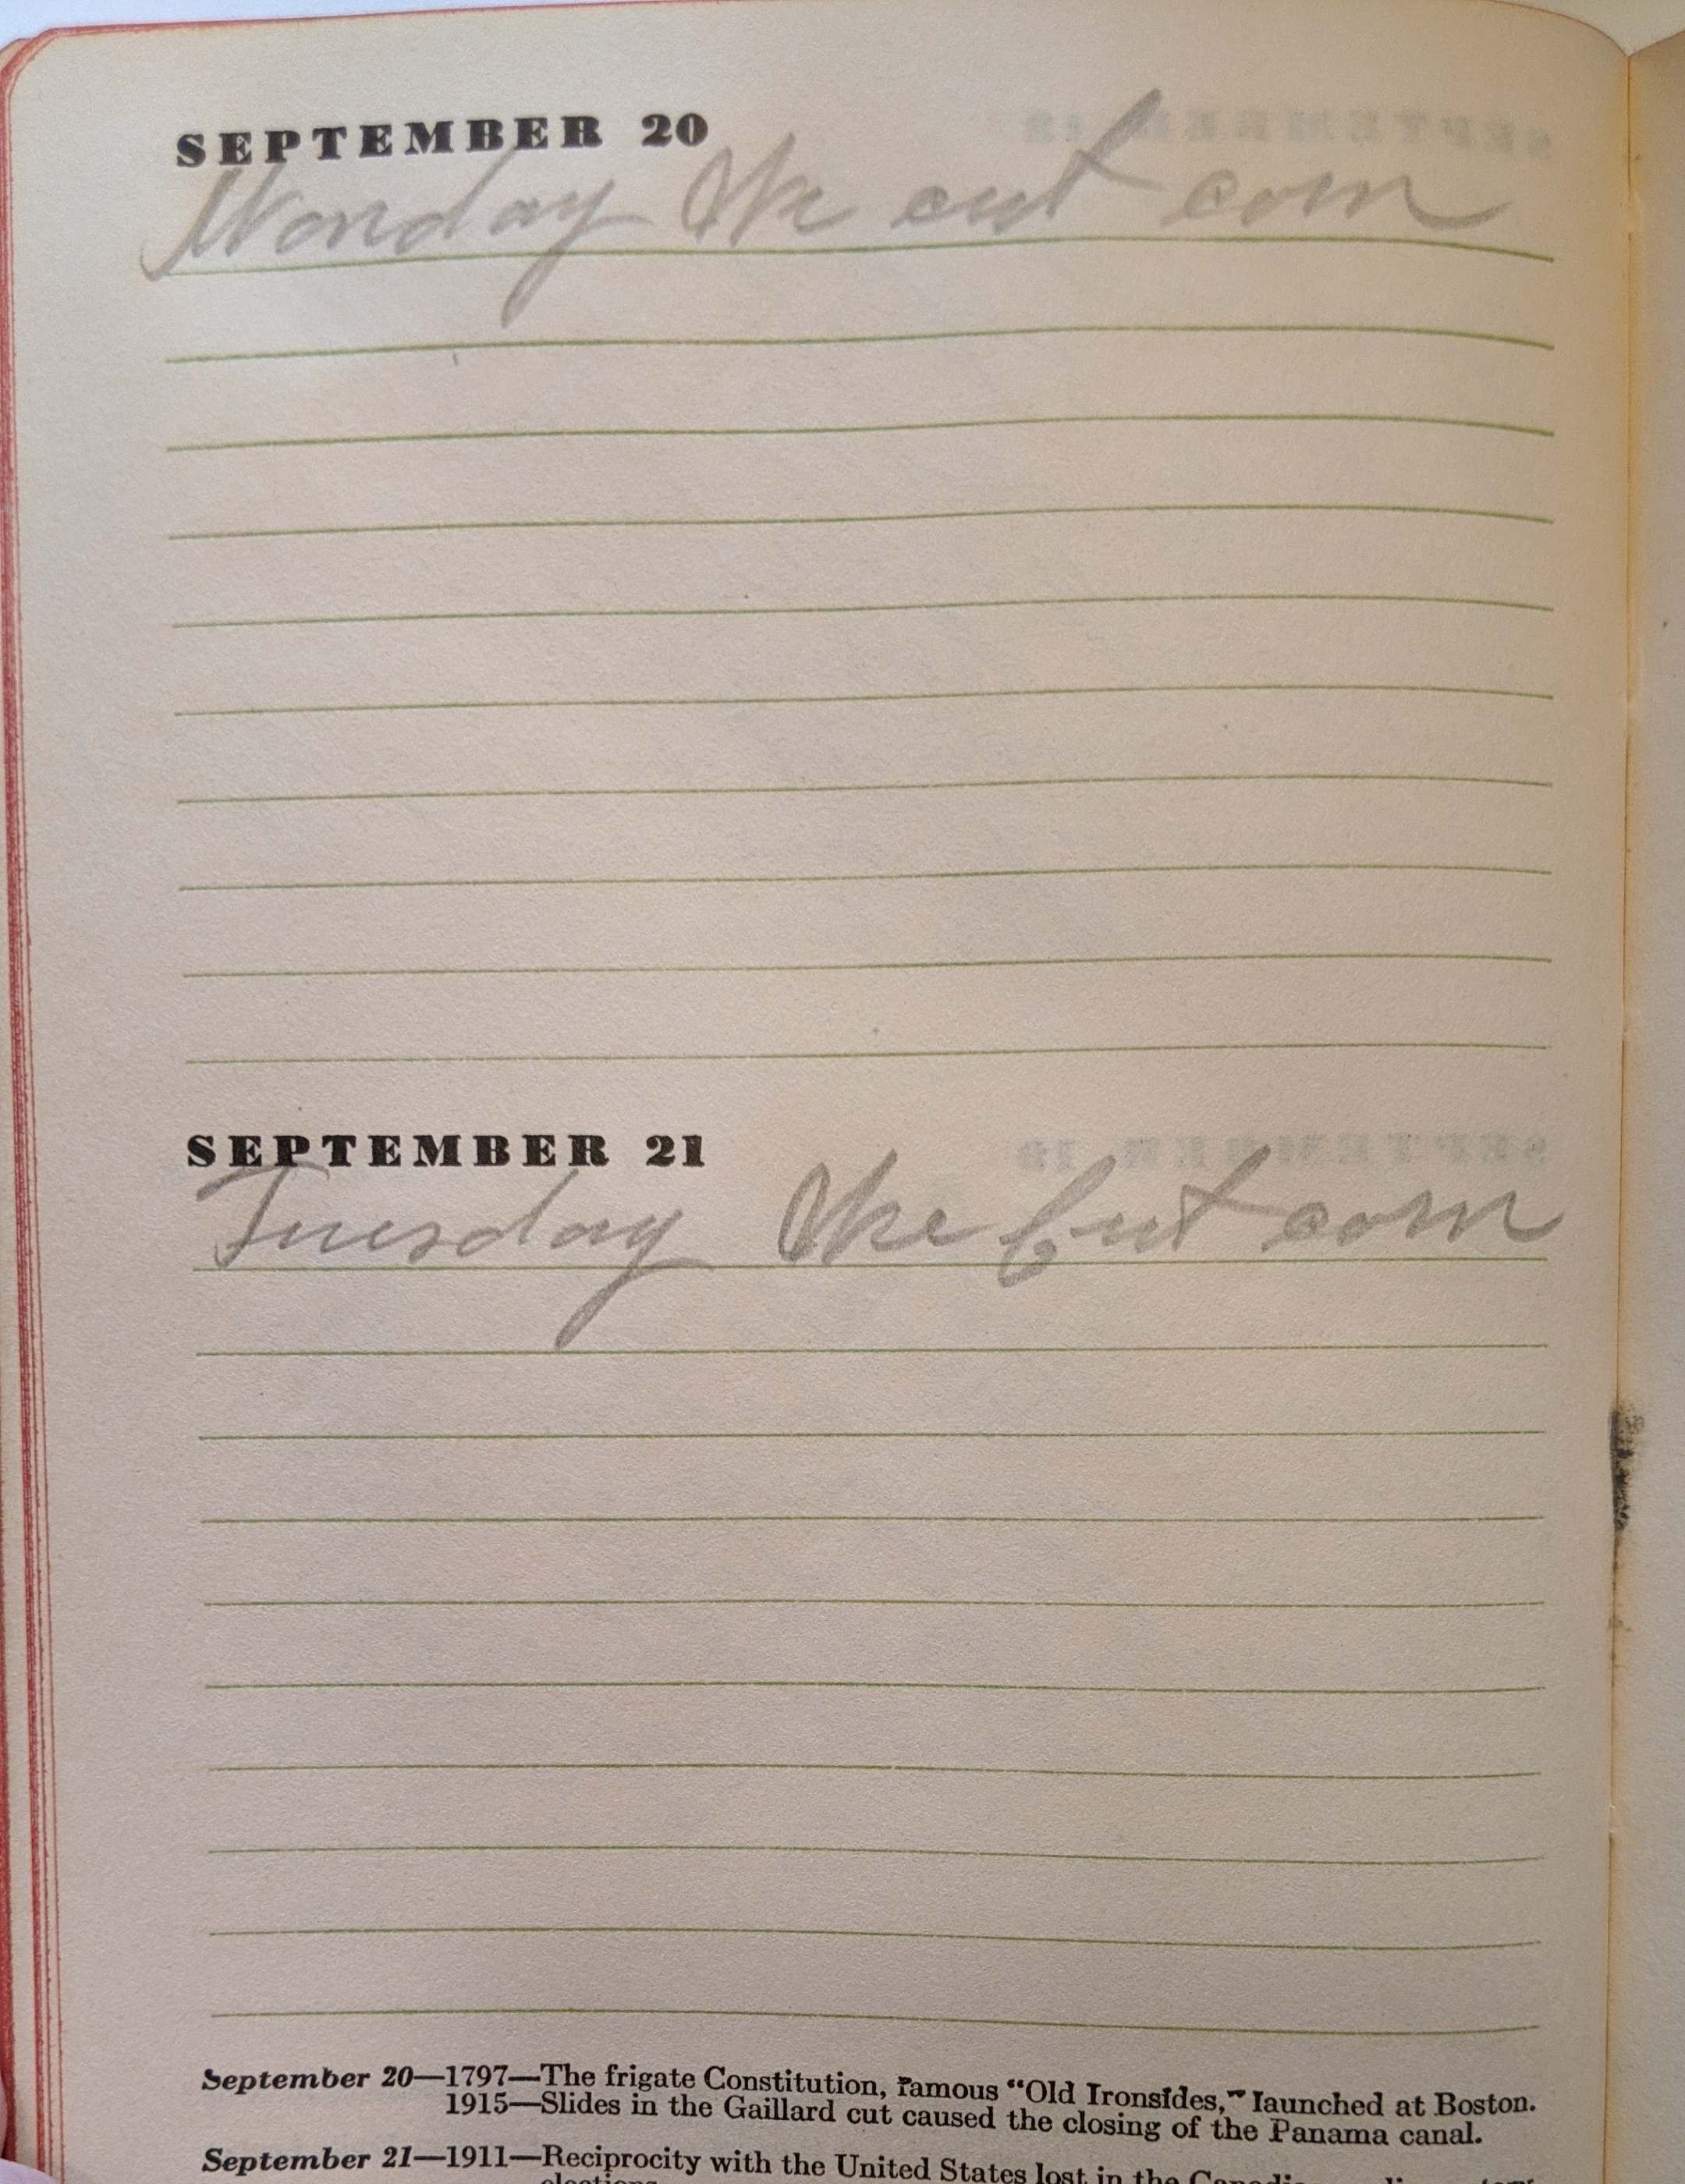 SEPTEMBER 20
Monday Ike cut corn
SEPTEMBER 21
Tuesday Ike Cut corn
September 20—1797—The frigate Constitution, famous “Old Ironsides,” launched at Boston.
1915—Slides in the Gaillard cut caused the closing of the Panama canal.
September 21—1911—Reciprocity with the United States lost in the
elections